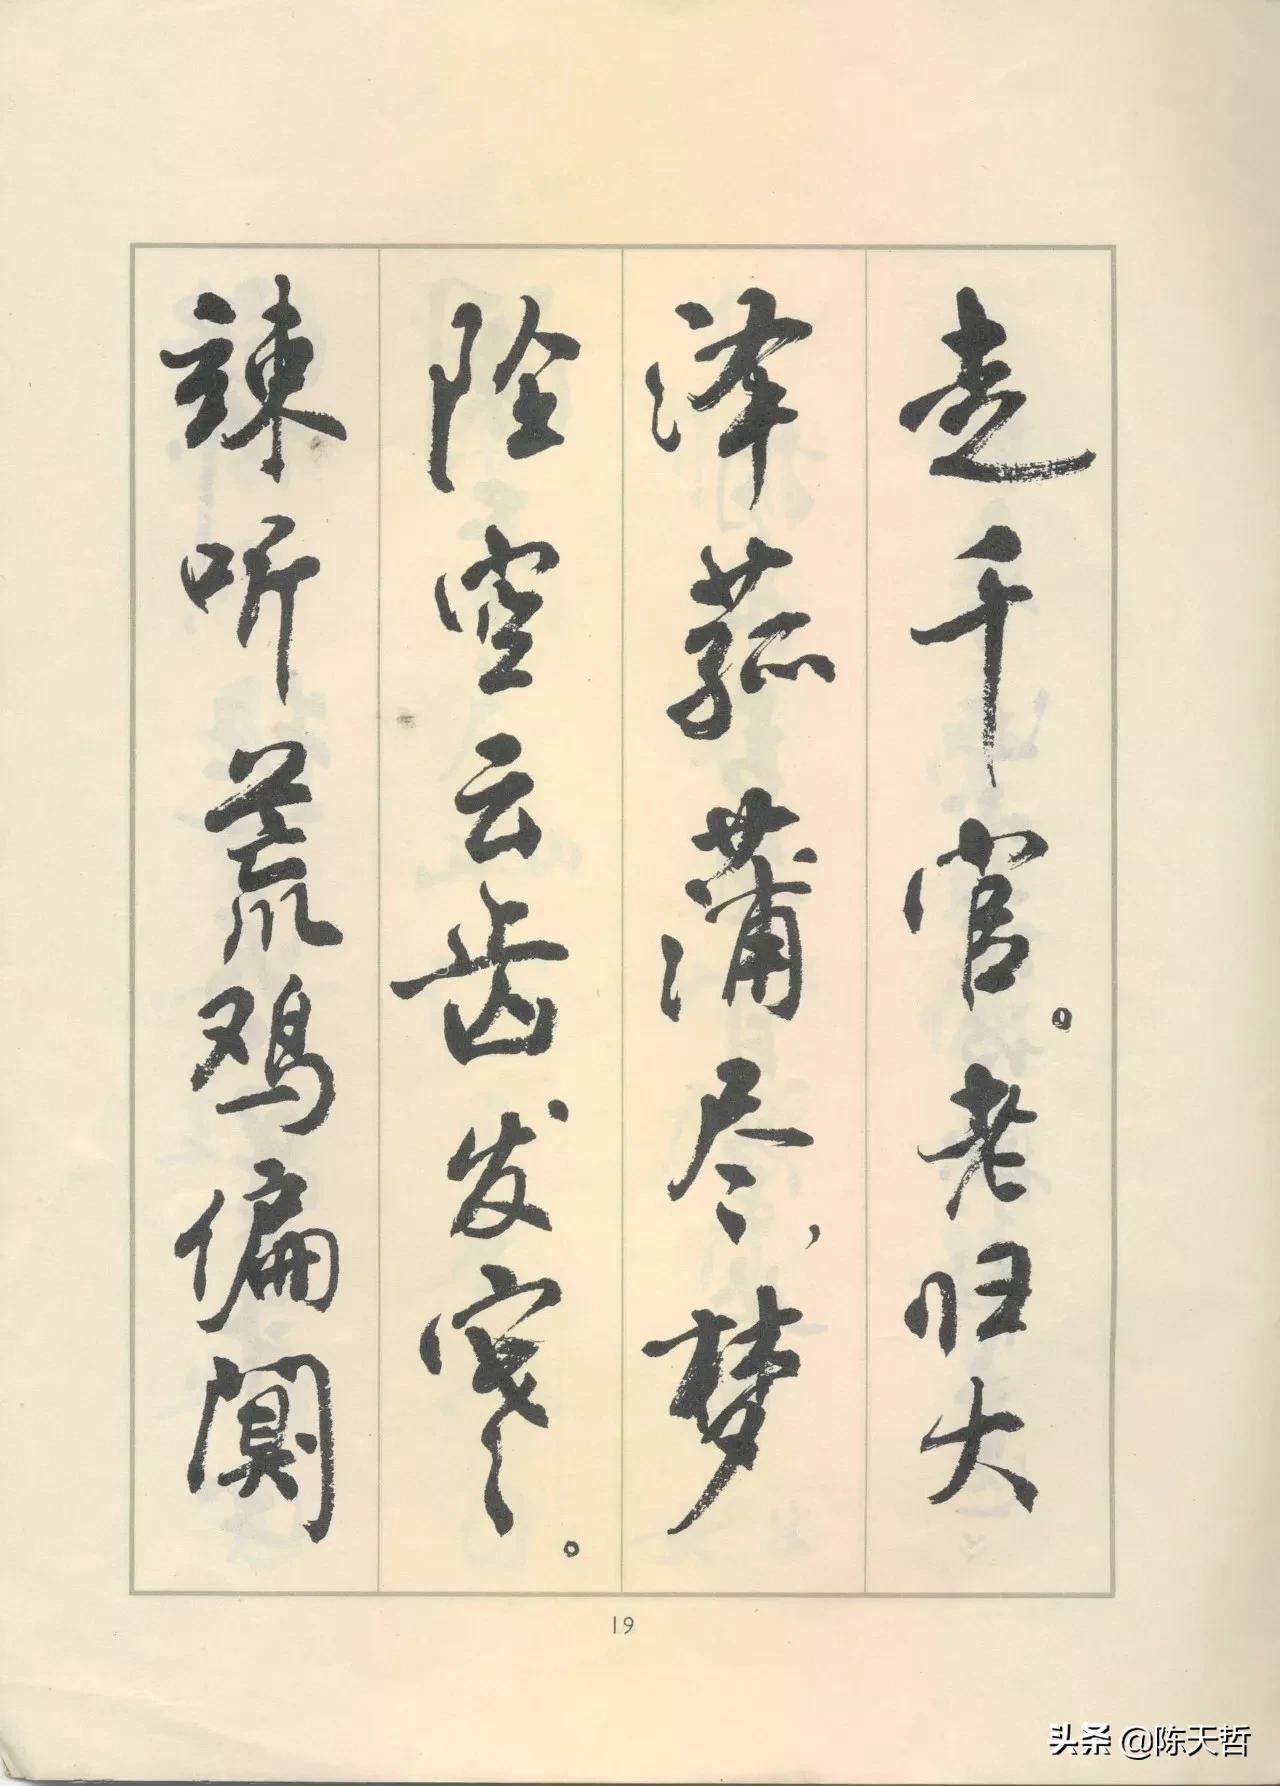 走千官。老归大
泽菰蒲尽，梦
坠空云齿发寒。
竦听荒鸡偏阒
19
头条 @陈天哲